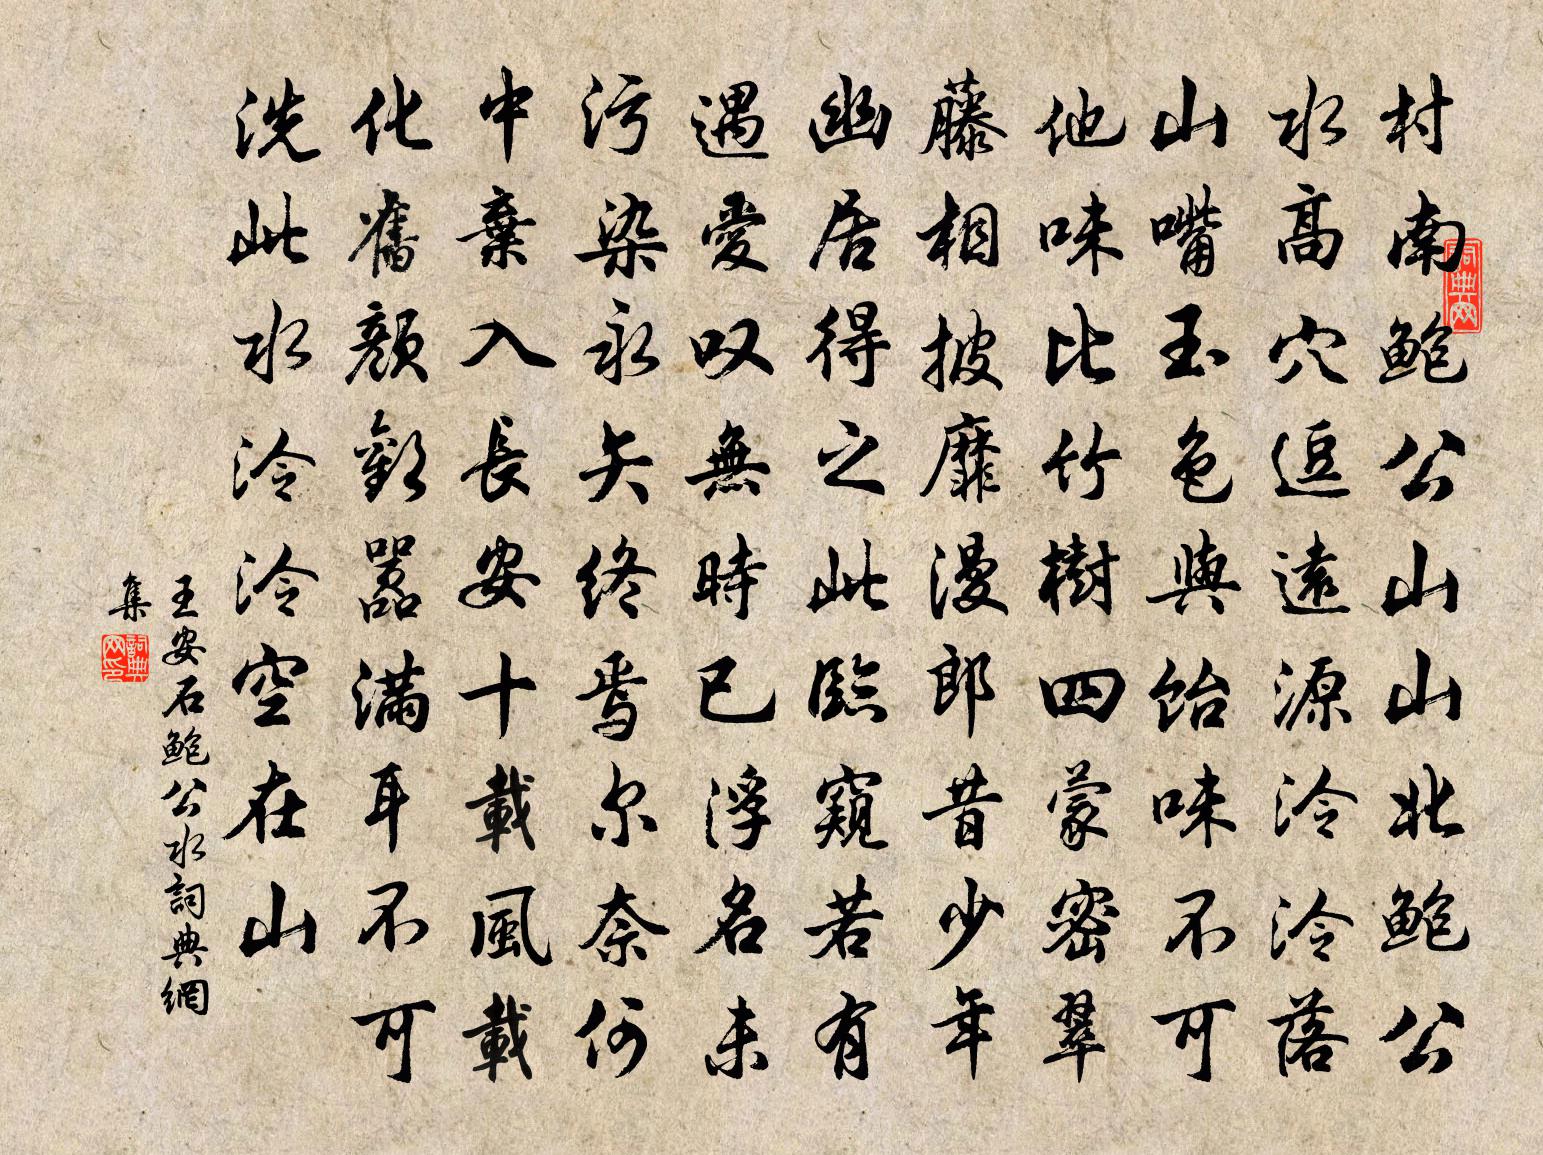 村南鮑公山山北鮑公
水高穴逗遠源泠泠落
山嘴玉色與飴味不可
他味比竹樹四蒙密翠
藤相披靡漫郎昔少年
幽居得之此臨窺若有
遇愛叹無時已浮名未
污染永矢終焉尔奈何
中棄入長安十載風載
化舊顏歡囂滿耳不可
洗此水泠泠空在山
王安石鮑公水詞典網
集
詞典网
詞典网印